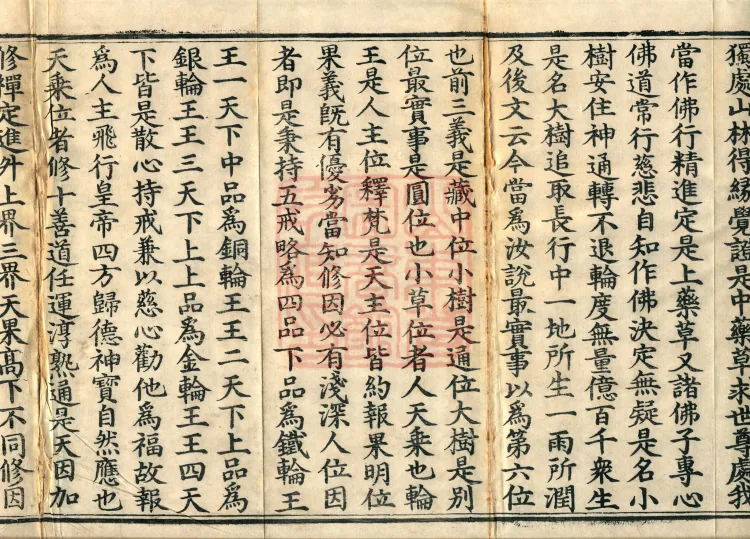 獨處山林得緣覺證是中藥草求世尊處我
當作佛行精進定是上藥草又諸佛子專心
佛道常行慈悲自知作佛決定無疑是名小
樹安住神通轉不退輪度無量億百千衆生
是名大樹追取長行中一地所生一雨所潤
及後文云今當爲汝說最實事以爲第六位
也前三義是藏中位小樹是通位大樹是別
位最實事是圓位也小草位者人天乗也輪
王是人主位釋梵是天主位皆約報果明位
果義旣有優劣當知修因必有淺深人位因
者即是秉持五戒略爲四品下品爲鐵輪王
王一天下中品爲銅輪王王二天下上品爲
銀輪王王三天下上上品爲金輪王王四天
下皆是散心持戒兼以慈心勸他爲福故報
爲人主飛行皇帝四方歸德神寶自然應也
天乗位者修十善道任運淳熟通是天因加
修禪定進升上界三界天果高下不同修因